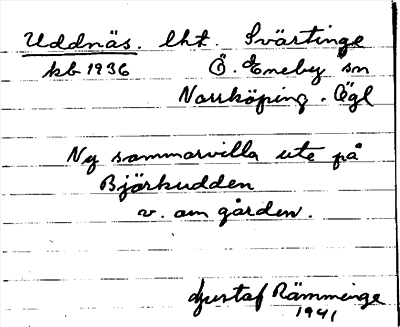 Uddnäs. lht. Svärtinge
kb 1936 Ö. Eneby sn
Norrköping. Ögl
Ny sommarvilla ute på
Björkudden
v. om gården.
Gustaf Rämminge
1941